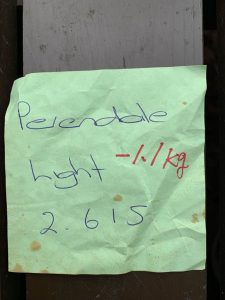 Perendale
Light -1.1kg
2.615